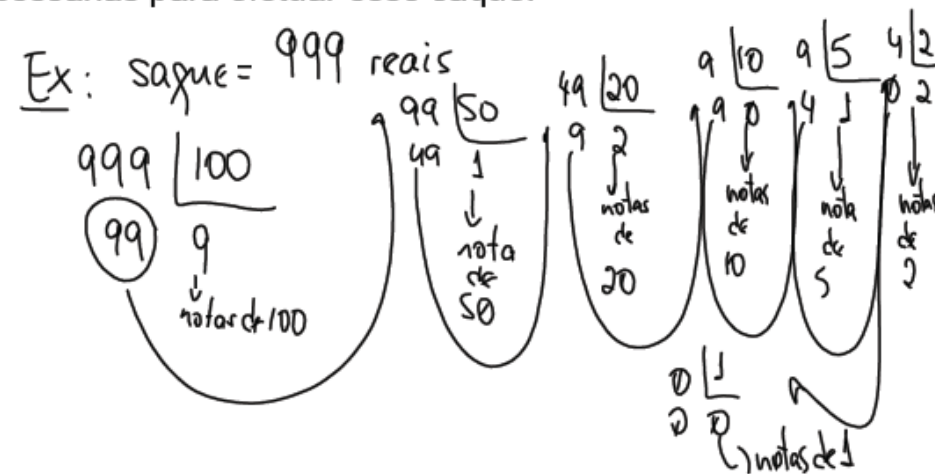 essárias para efetuar esse saque.
Ex: saque = 999 reais
999 | 100
99 9
notas de 100
99 | 50
49 1
nota
de
50
49 | 20
9 2
notas
de
20
9 | 10
9 0
notas
de
10
9 | 5
4 1
nota
de
5
4 | 2
0 2
notas
de
2
0 | 1
0 0
notas de 1